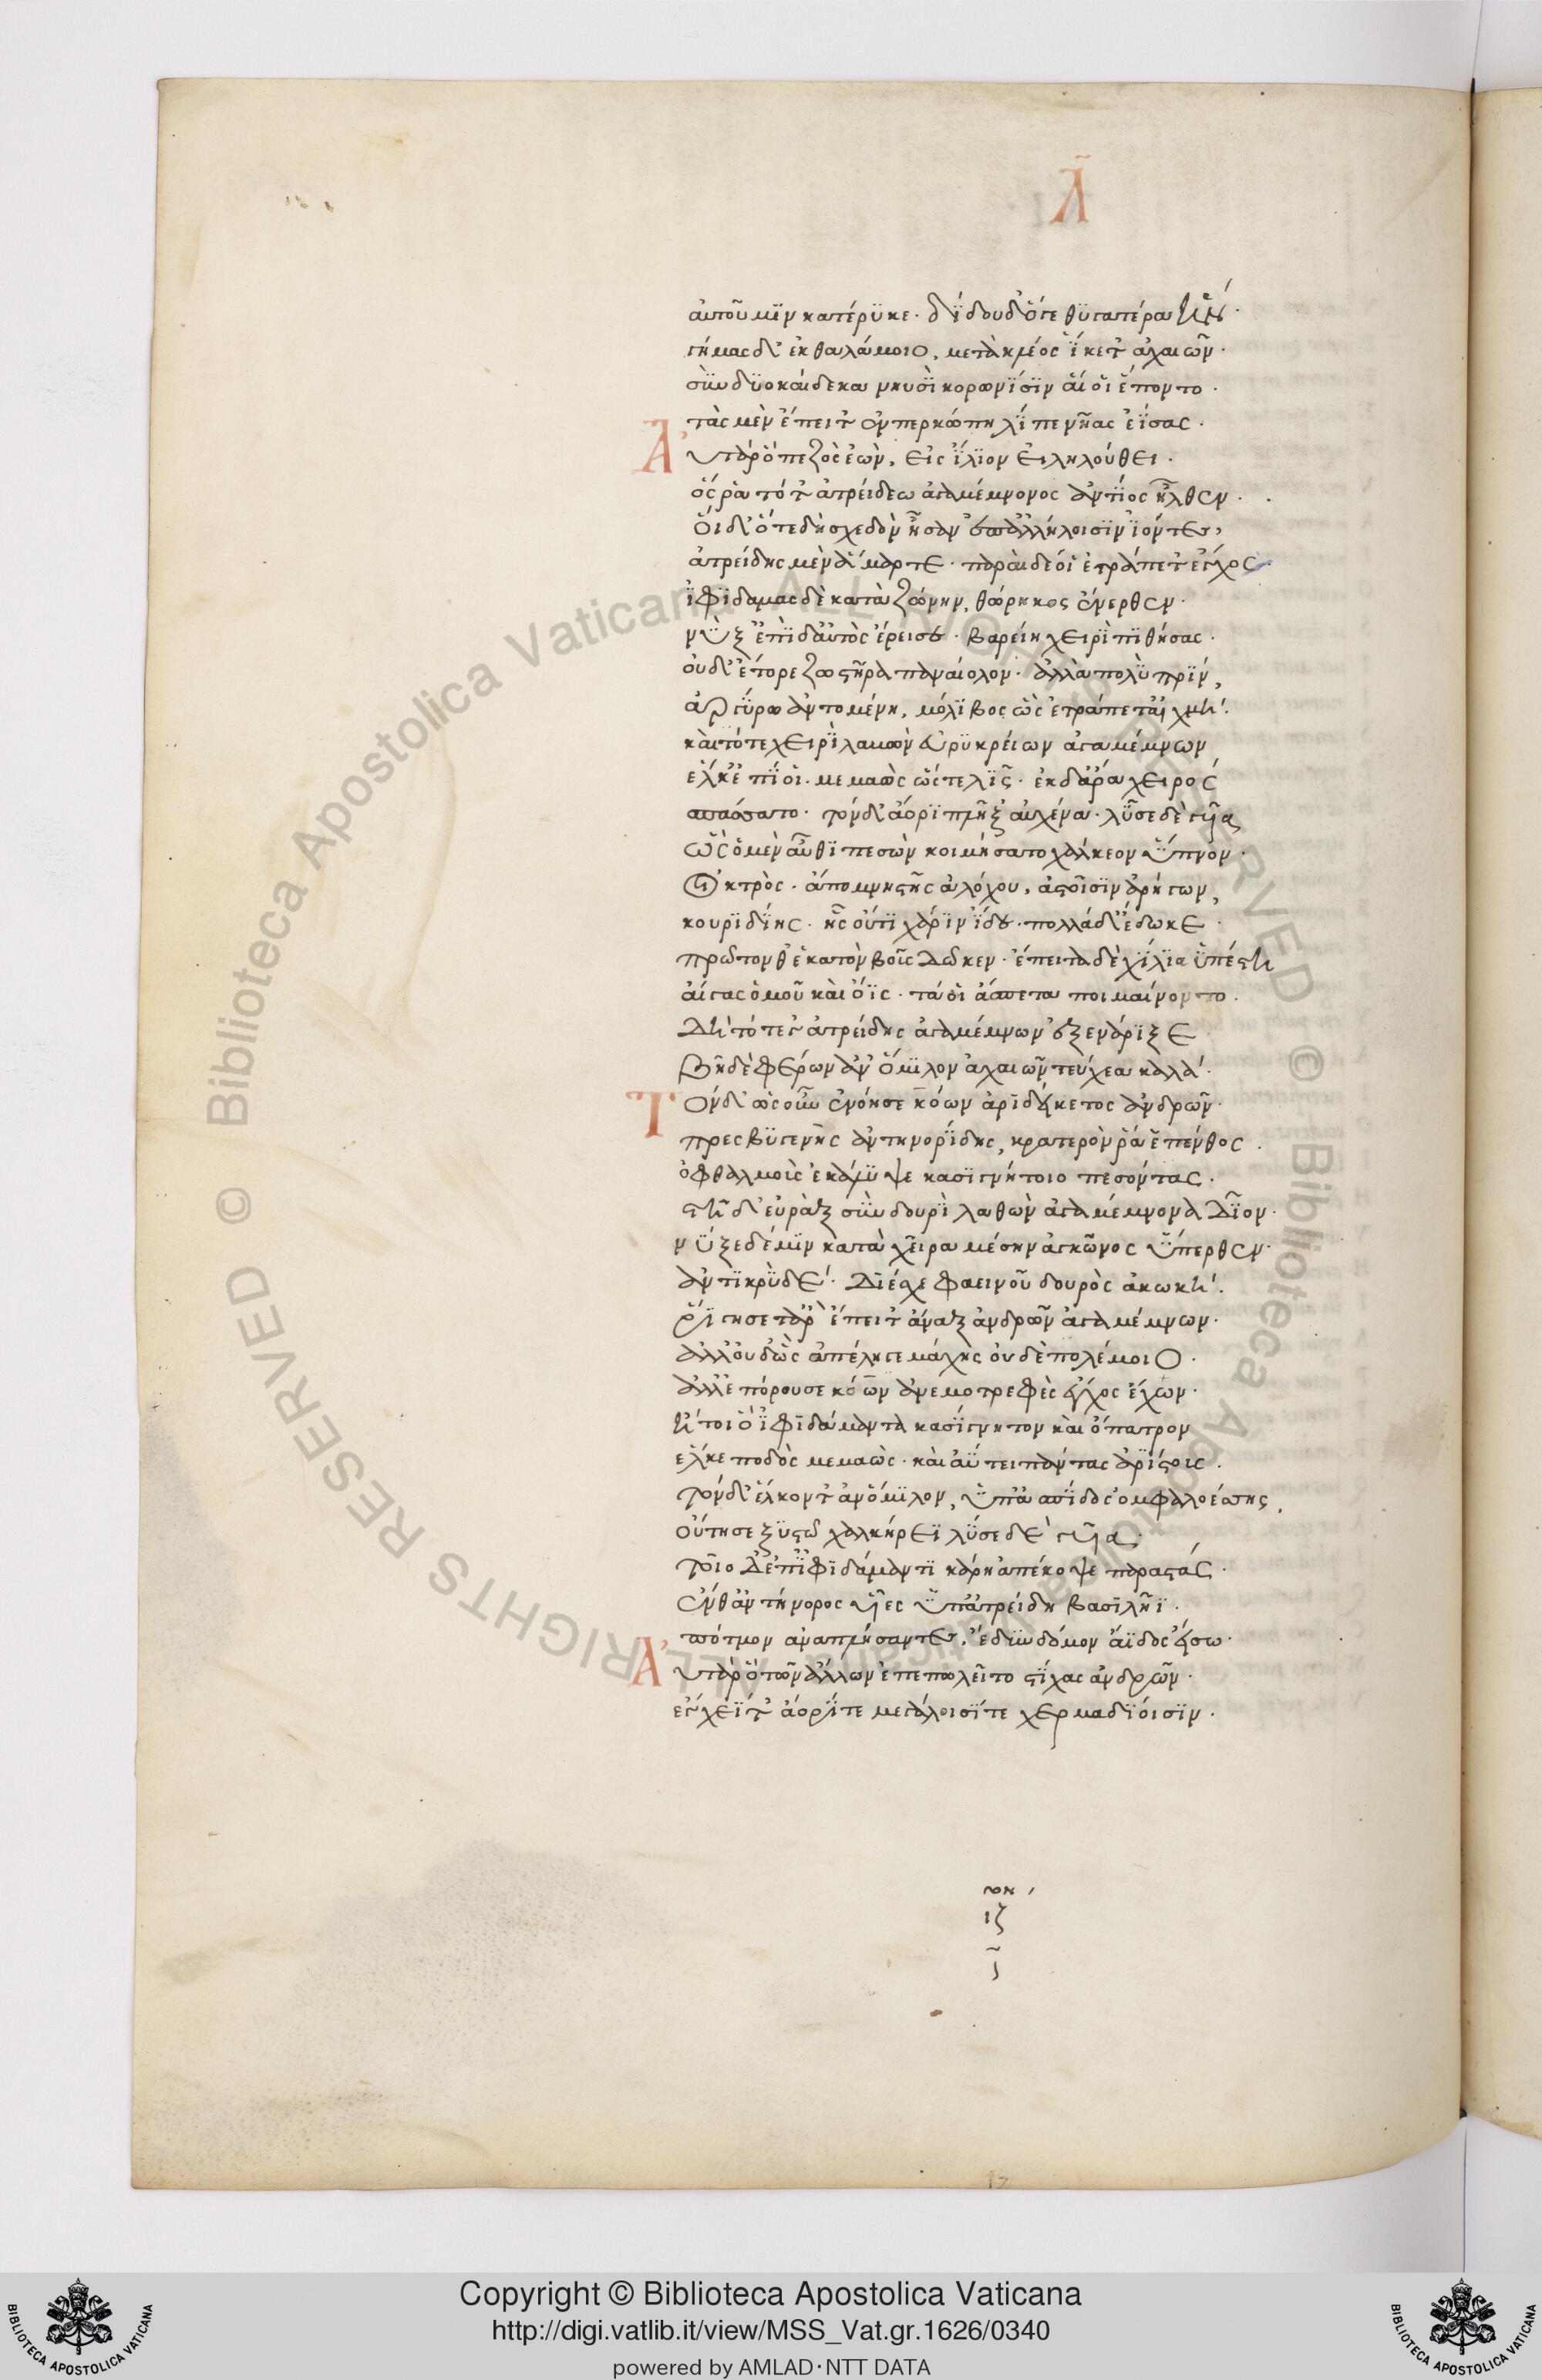 λ̃
αὐτοῦ μϊν κατέρϋκε· δί̈δου δ' ὅτε θϋγατέρα ἥν·
γήμας δ' ἐκ θαλάμοιο, μετὰ κλέος ἵ̈κετ' ἀχαιῶν·
σὺν δϋοκαίδεκα νηυσὶ̈ κορωνί̈σϊν αἵ οἱ ἕποντο·
τὰς μὲν ἔπειτ' ἐν περκώπη λί̈πε νῆας ἐΐσας·
Ἀυτὰρ ὁ πεζὸς ἐὼν, εἰς ἴ̈λϊον εἰληλούθει·
ὅς ῥα τότ' ἀτρείδεω ἀγαμέμνονος ἀντί̈ος ἦλθεν·
Οἱ δ' ὅτε δὴ σχεδὸν ἦσαν ἐπ' ἀλλήλοισϊν ἰ̈όντες,
ἀτρείδης μὲν ἅμαρτε· παραὶ δέ οἱ ἐτράπετ' ἔγχος·
ἰ̈φϊδαμας δὲ κατὰ ζώνην, θώρηκος ἔνερθεν·
νύ̈ξ' ἐπὶ̈ δ' αὐτὸς ἔρεισε· βαρείη χειρὶ̈ πϊθήσας·
οὐδ' ἔτορε ζωστῆρα παναίολον· ἀλλὰ πολὺ̈ πρί̈ν,
ἀργύ̈ρω ἀντομένη, μόλϊβος ὣς ἐτράπετ' αἰχμή·
καὶ τότε χειρὶ̈ λαβὼν εὐρϋκρείων ἀγαμέμνων
ἕλκ' ἐπί̈ οἷ. μεμαὼς ὥς τε λῖ̈ς· ἐκ δ' ἄρα χειρος
σπάσσατο· τὸν δ' ἄορϊ πλῆξ' αὐχένα· λῦ̈σε δὲ γυῖα
ὣς ὁ μὲν αὖθϊ πεσὼν κοιμήσατο χάλκεον ὕ̈πνον·
Οἰκτρὸς· ἀπὸ μνηστῆς ἀλόχου, ἀστοῖσϊν ἀρήγων,
κουρϊδί̈ης· ἧς οὔτϊ χάρϊν ἴ̈δε· πολλὰ δ' ἔδωκε·
πρῶτον θ' ἑκατὸν βοῦς δῶκεν· ἔπειτα δὲ χί̈λϊα ὑ̈πέστη
αἶγας ὁμοῦ καὶ ὄϊς· τά οἱ ἄσπετα ποιμαίνοντο·
Δὴ τότε γ' ἀτρείδης ἀγαμέμνων ἐξενάρϊξε
Βῆ δὲ φέρων ἀν' ὅμϊλον ἀχαιῶν τεύχεα καλά·
Τὸν δ' ὡς οὖν ἐνόησε κόων ἀρϊδείκετος ἀνδρῶν·
πρεσβϋγενὴς ἀντηνορί̈δης, κρατερὸν ῥά ἑ πένθος·
ὀφθαλμοὺς ἐκάλϋψε κασϊγνήτοιο πεσόντος·
στῆ δ' εὐρὰξ σὺν δουρὶ̈ λαθὼν ἀγαμέμνονα δῖ̈ον·
νύ̈ξε δέ μϊν κατὰ χεῖρα μέσην ἀγκῶνος ὕ̈περθεν·
ἀντϊκρὺ̈ δὲ· διέσχε φαεινοῦ δουρὸς ἀκωκή·
ῥί̈γησε τ' ἄρ' ἔπειτ' ἄναξ ἀνδρῶν ἀγαμέμνων·
ἀλλ' οὐδ' ὧς ἀπέληγε μάχης οὐδὲ πολέμοιο·
ἀλλ' ἐπόρουσε κόων ἀνεμοτρεφὲς ἔγχος ἔχων·
ἤτοι ὁ ἰ̈φϊδάμαντα κασί̈γνητον καὶ ὄπατρον
ἕλκε ποδὸς μεμαὼς· καὶ αὔ̈τει πάντας ἀρί̈στους·
τὸν δ' ἕλκοντ' ἀν' ὅμϊλον, ὑ̈π' ἀσπί̈δος ὀμφαλοέσσης,
οὔτησε ξϋστῶ χαλκήρεϊ λῦ̈σε δὲ γυῖα·
τοῖο δ' ἐπ' ἰ̈φϊδάμαντϊ κάρη ἀπέκοψε παραστάς·
ἔνθ' ἀντήνορος υἷες ὑ̈π' ἀτρείδη βασϊλῆϊ·
πότμον ἀναπλήσαντες, ἔδυν δόμον ἄϊδος εἴσω·
Ἀυτὰρ ὁ τῶν ἄλλων ἐπεπωλεῖτο στί̈χας ἀνδρῶν·
ἔγχεΐ τ' ἄορί̈ τε μεγάλοισί̈ τε χερμαδί̈οισϊν·
ιζ